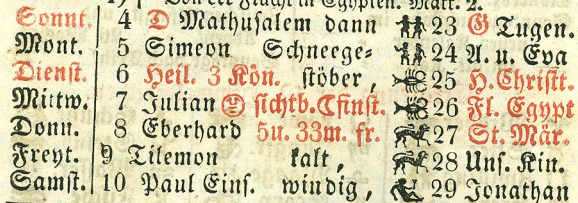 Von der Flucht in Egypten. Matt. 2.
Sonnt. 4 D Mathusalem dann 23 G Tugen.
Mont. 5 Simeon Schneege= 24 A. u. Eva
Dienst. 6 Heil. 3 Kön. stöber, 25 H. Christt.
Mittw. 7 Julian sichtb. Cfinst. 26 Fl. Egypt
Donn. 8 Eberhard 5u. 33m. fr. 27 St. Mär.
Freyt. 9 Tilemon kalt, 28 Uns. Kin.
Samst. 10 Paul Eins. windig, 29 Jonathan